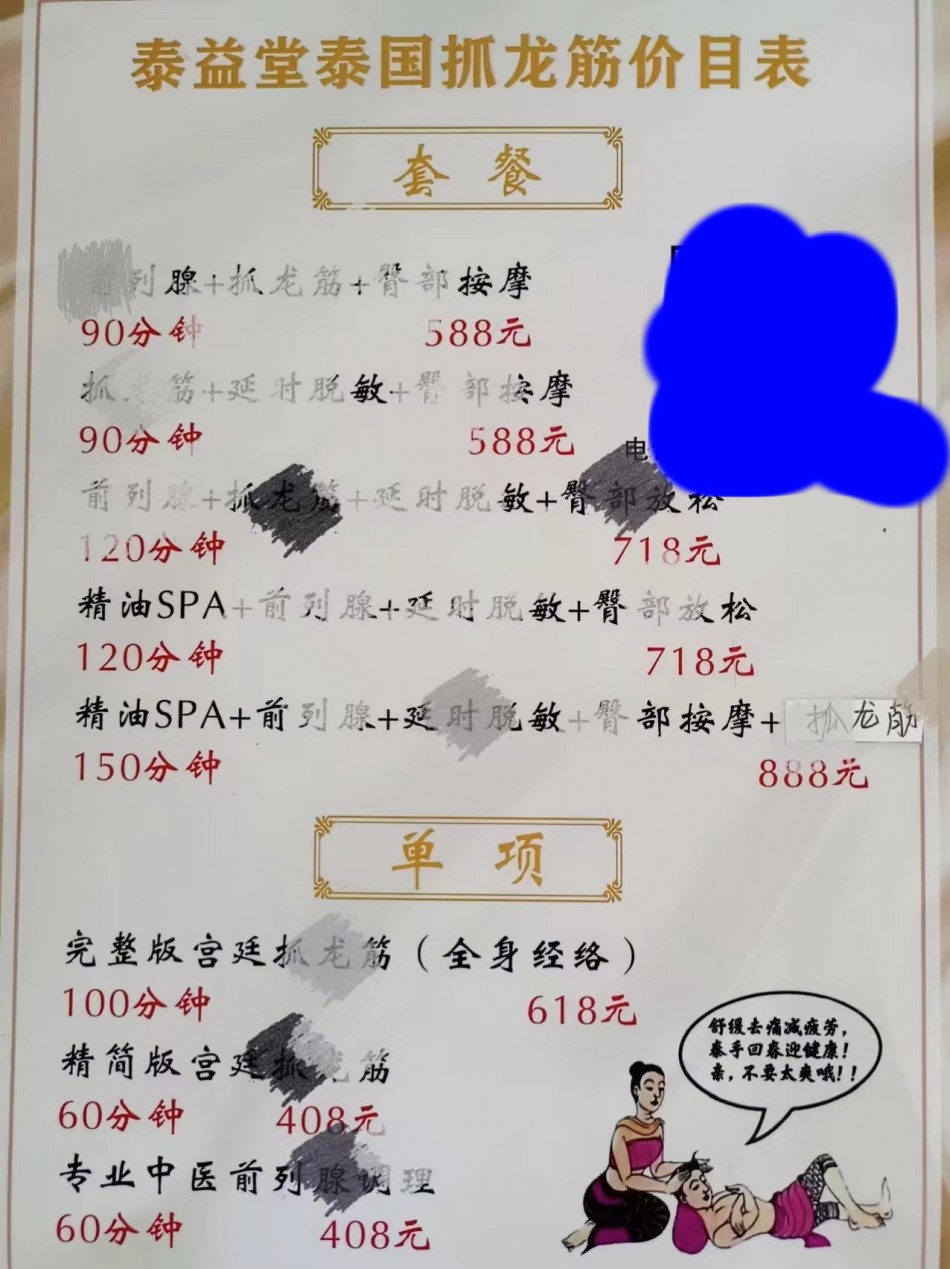 泰益堂泰国抓龙筋价目表
套餐
前列腺+抓龙筋+臀部按摩
90分钟 588元
抓龙筋+延时脱敏+臀部按摩
90分钟 588元
电
前列腺+抓龙筋+延时脱敏+臀部放松
120分钟 718元
精油SPA+前列腺+延时脱敏+臀部放松
120分钟 718元
精油SPA+前列腺+延时脱敏+臀部按摩+抓龙筋
150分钟 888元
单项
完整版宫廷抓龙筋（全身经络）
100分钟 618元
精简版宫廷抓龙筋
60分钟 408元
专业中医前列腺调理
60分钟 408元
舒缓去痛减疲劳，
泰手回春迎健康！
亲，不要太爽哦！！